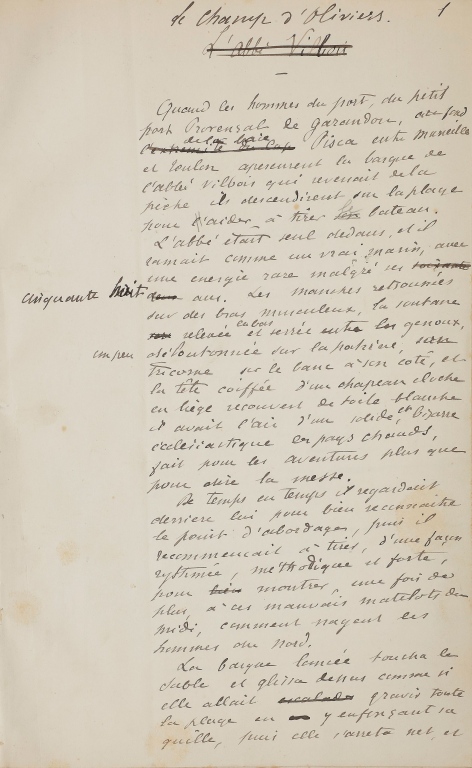 1
Le Champ d'Oliviers.
L'abbé Vilbois
Quand les hommes du port, du petit
port Provençal de Garandou, au fond
de la baie
l'extremité du cap Pisca entre Marseille
et Toulon aperçurent la barque de
l'abbé Vilbois qui revenait de la
pêche ils descendirent sur la plage
pour l'aider à tirer son bateau.
L'abbé était seul dedans, et il
ramait comme un vrai marin, avec
une énergie rare malgré ses soixante
cinquante huit deux ans. Les manches retroussées
sur des bras musculeux, la soutane
relevée en bas et serrée entre les genoux,
un peu déboutonnée sur la poitrine, son
tricorne sur le banc à son côté, et
la tête coiffée d'un chapeau cloche
en liège recouvert de toile blanche
il avait l'air d'un solide et bizarre
ecclésiastique des pays chauds,
fait pour les aventures plus que
pour dire la messe.
De temps en temps il regardait
derrière lui pour bien reconnaître
le point d'abordage, puis il
recommençait à tirer, d'une façon
rythmée, méthodique et forte,
pour bien montrer, une fois de
plus, à ces mauvais matelots du
midi, comment nagent les
hommes du nord.
La barque lancée toucha le
sable et glissa dessus comme si
elle allait escalader gravir toute
la plage en y enfonçant sa
quille, puis elle s'arreta net, et